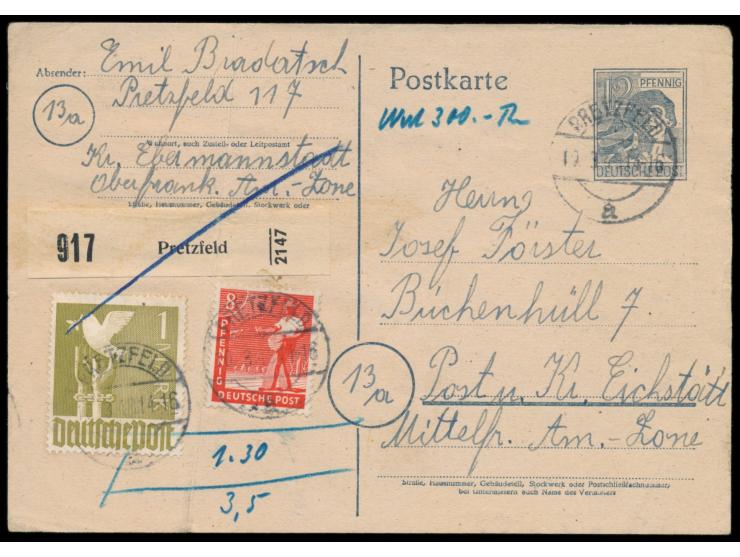 Absender: Emil Biadatsch
Pretzfeld 117
13a
Wohnort, auch Zustell- oder Leitpostamt
Kr. Ebermannstadt
Oberfrank. Am.-Zone
Straße, Hausnummer, Gebäudeteil, Stockwerk oder
917 Pretzfeld 2147
1
DEUTSCHE POST
8
PFENNIG
DEUTSCHE POST
PRETZFELD
14-16
1.30
3,5
Postkarte
12 PFENNIG
DEUTSCHE POST
PRETZFELD
a
Wert 300.-
Herrn
Josef Förster
Büchenhüll 7
13a
Post u. Kr. Eichstätt
Mittelfr. Am.-Zone
Straße, Hausnummer, Gebäudeteil, Stockwerk oder Postschließfachnummer,
bei Untermietern auch Name des Vermieters